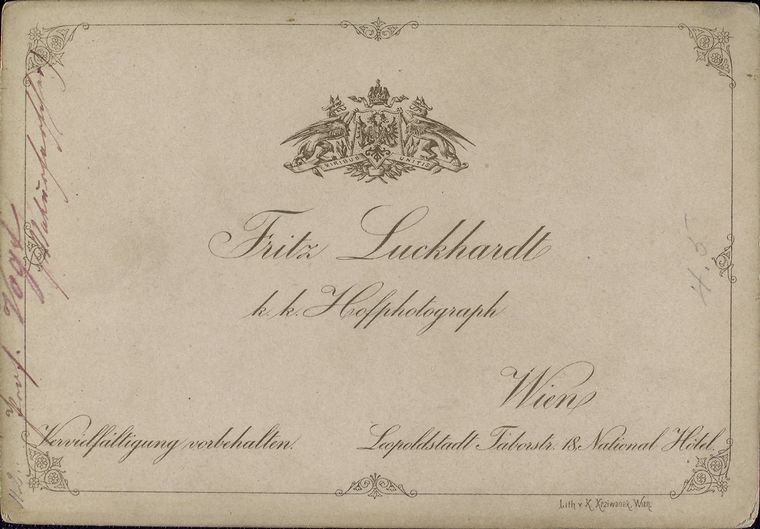 VIRIBUS UNITIS
Fritz Luckhardt
k. k. Hofphotograph
Wien
Vervielfältigung vorbehalten.
Leopoldstadt Taborstr. 18. National Hôtel.
Lith v. K. Krziwanek, Wien.
Prof. Vogt
Naturforscher
4.5